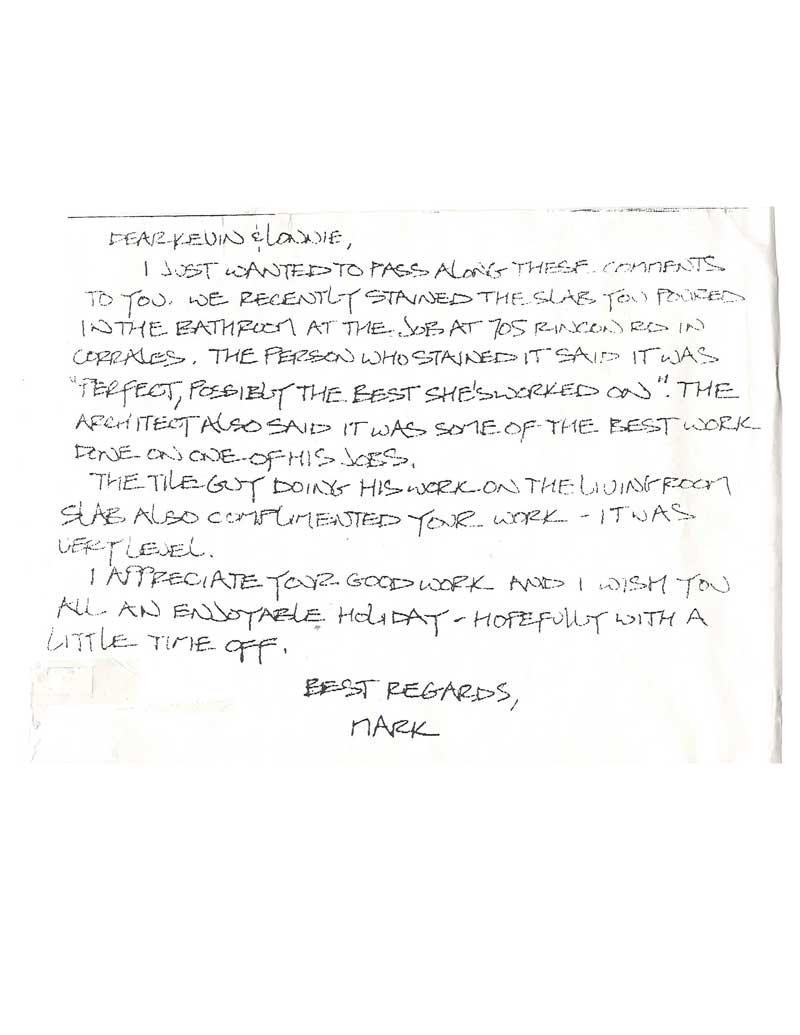 DEAR KEVIN & LONNIE,
I JUST WANTED TO PASS ALONG THESE COMMENTS
TO YOU. WE RECENTLY STAINED THE SLAB YOU POURED
IN THE BATHROOM AT THE JOB AT 705 RINCON RD IN
CORRALES. THE PERSON WHO STAINED IT SAID IT WAS
"PERFECT, POSSIBLY THE BEST SHE'S WORKED ON". THE
ARCHITECT ALSO SAID IT WAS SOME OF THE BEST WORK
DONE ON ONE OF HIS JOBS.
THE TILE GUY DOING HIS WORK ON THE LIVING ROOM
SLAB ALSO COMPLIMENTED YOUR WORK - IT WAS
VERY LEVEL.
I APPRECIATE YOUR GOOD WORK AND I WISH YOU
ALL AN ENJOYABLE HOLIDAY - HOPEFULLY WITH A
LITTLE TIME OFF.
BEST REGARDS,
MARK